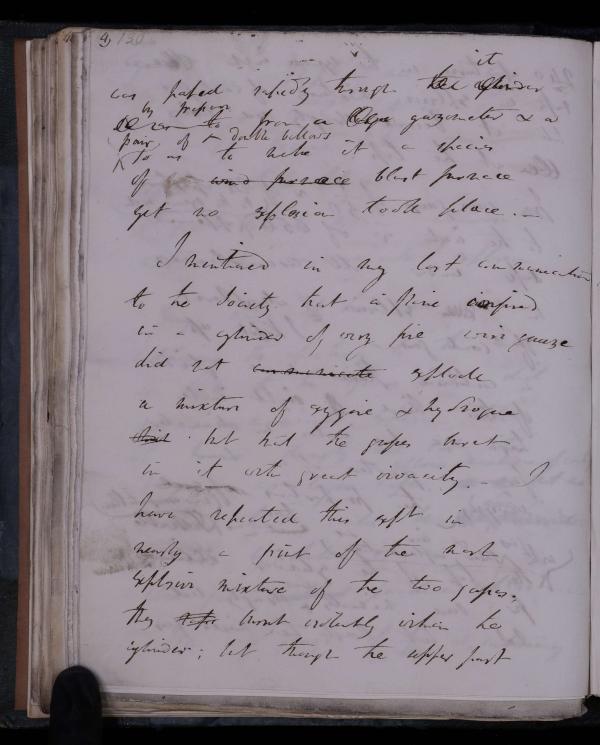 130
it
was passed rapidly through the cylinder
by pressure
from a large gazometer & a
pair of double bellows
so as to make it a species
of wind furnace blast furnace
yet no explosion took place. —
I mentioned in my last communication
to the Society that a flame confined
in a cylinder of very fine wire gauze
did not communicate explode
a mixture of oxygene & hydrogene
but that the gases burnt
in it with great vivacity. — I
have repeated this expt in
nearly a pint of the most
explosive mixture of the two gases.
they burnt violently within the
cylinder; but though the upper part